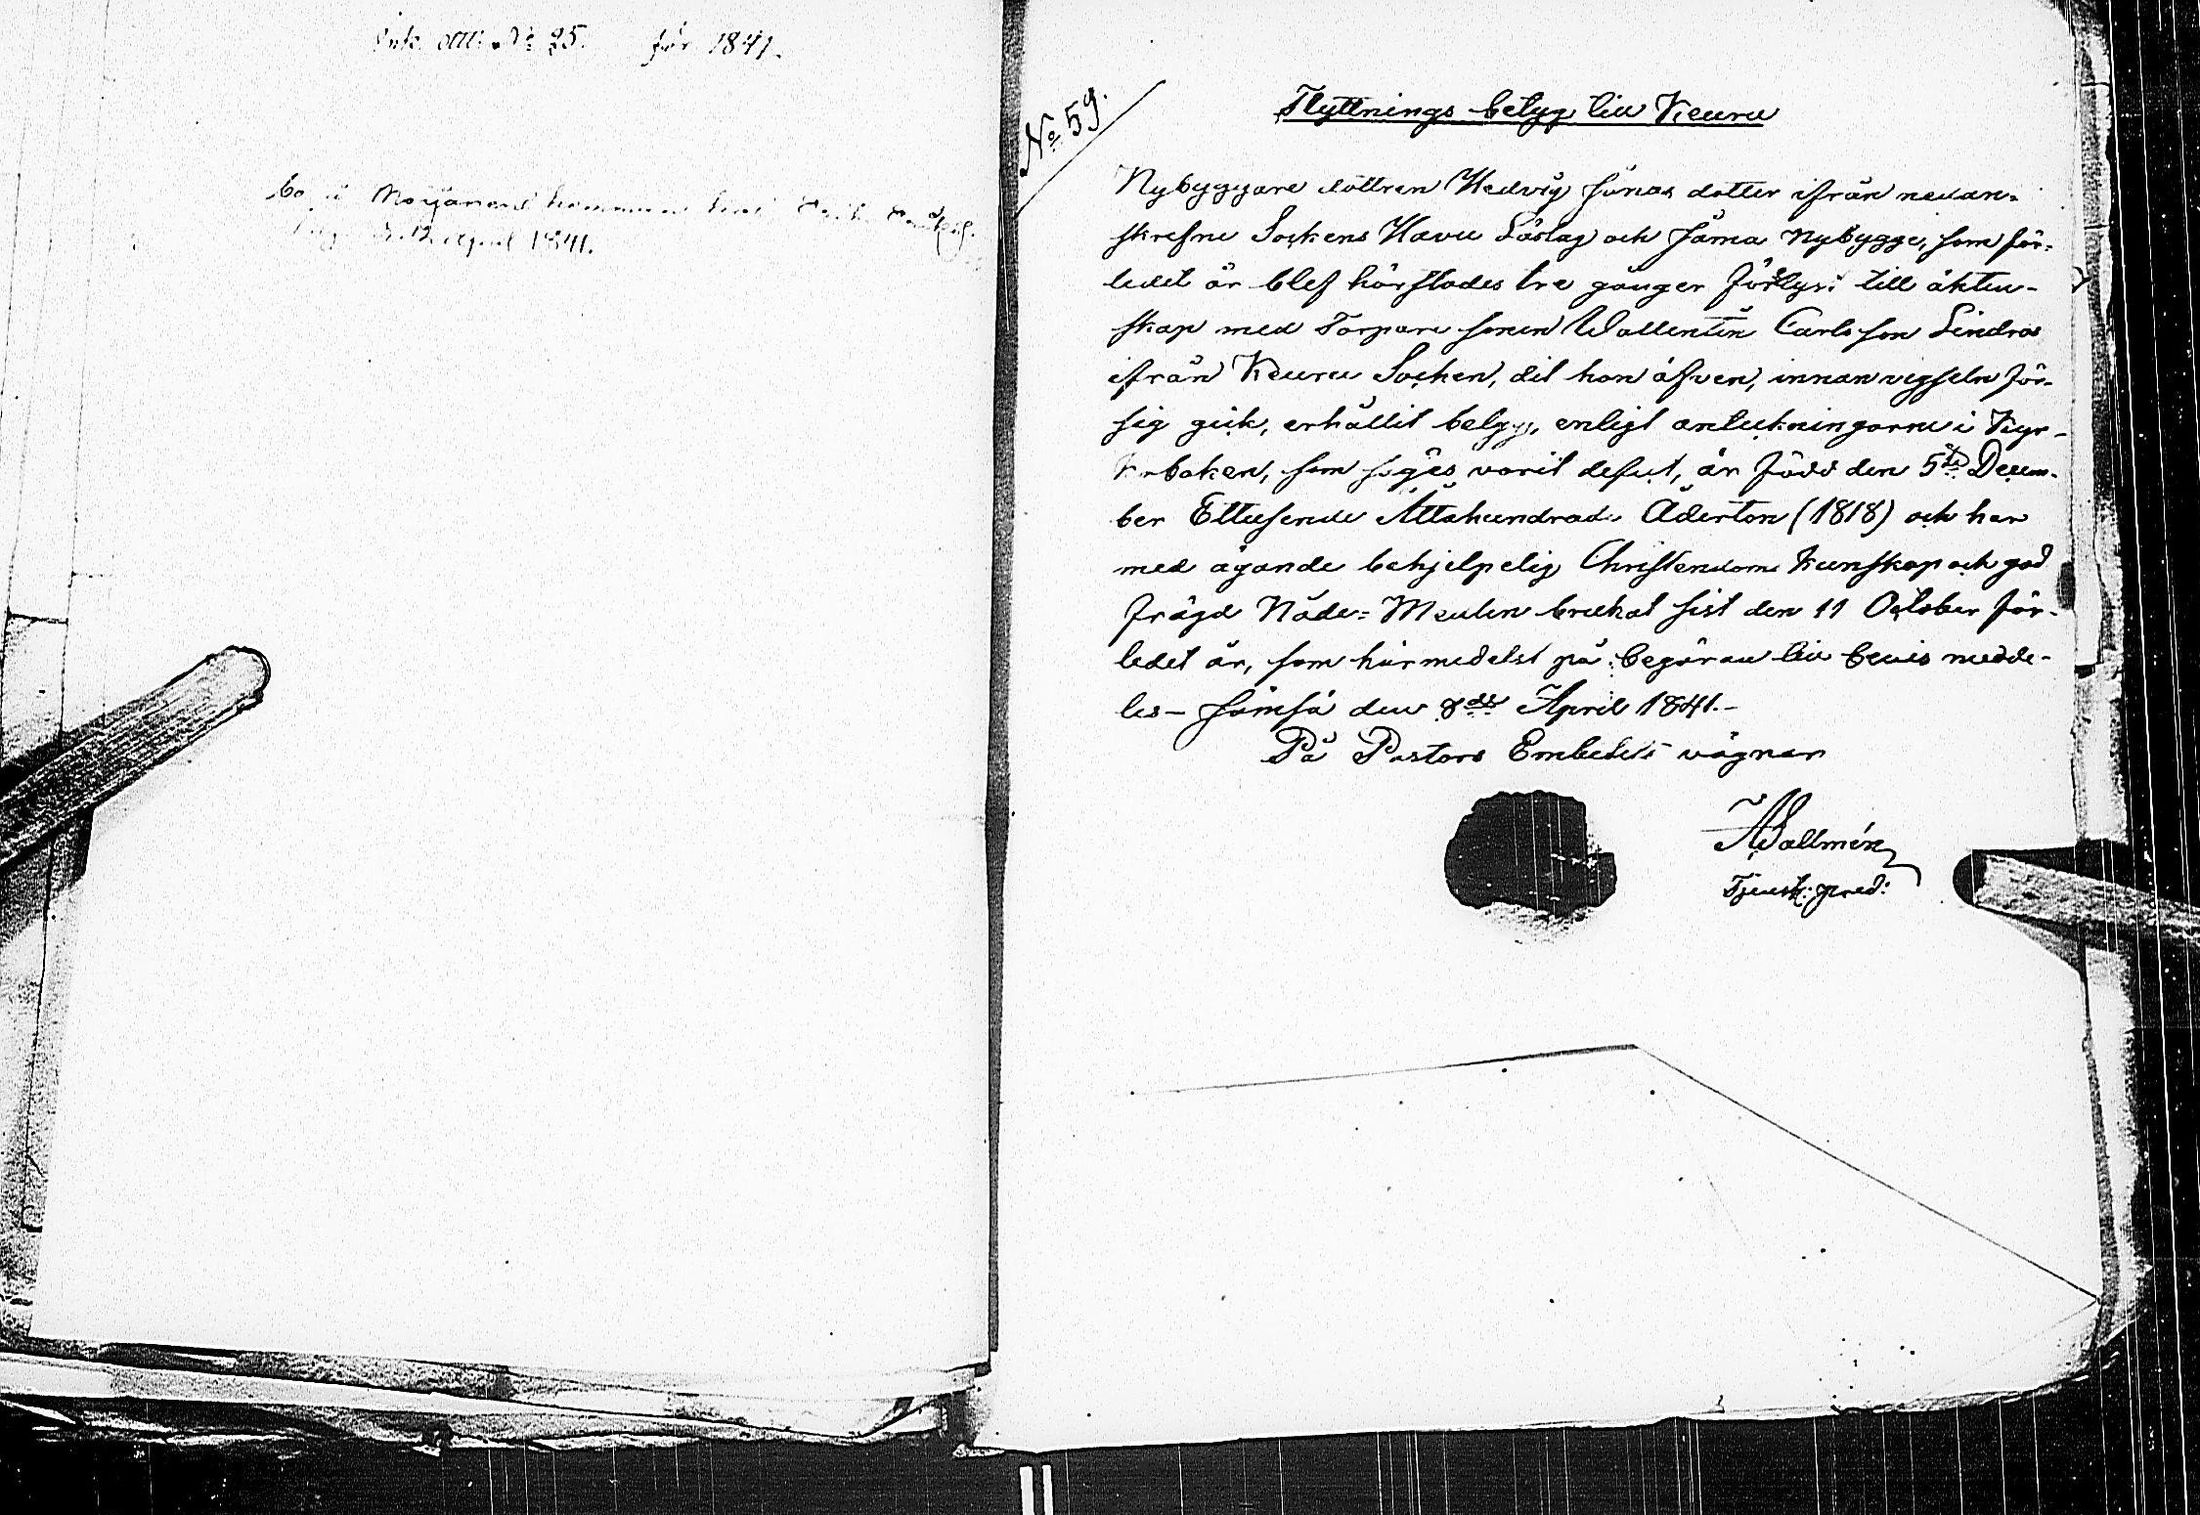 Ink. att: № 25. för 1841.
april 1841.
№ 59.
Flyttnings-betyg till Keuru
Nybyggare dottren Hedvig Jonas dotter ifrån nedan-
skrefne Sockens Havu Löslag och Jäma Nybygge, som för-
ledet år blef härstädes tre gånger förlyst till äkten-
skap med Torpare sonen Wallentin Carlsson Lindros
ifrån Keuru Socken, dit hon äfven, innan vigseln för-
sig gick, erhållit betyg, enligt anteckningarne i Kyr-
koboken, som säges varit defect, är född den 5te Decem-
ber Ettusende Åttahundrade Aderton (1818) och har
med ägande behjelpelig Christendoms kunskap och god
frägd Nåde-Medlen brukat sist den 11 October för-
ledet år, som härmedelst på begäran till bevis medde-
les – Jämsä den 8de April 1841.–
På Pastors Embetets vägnar
Wallmén
Tjenst: pred: